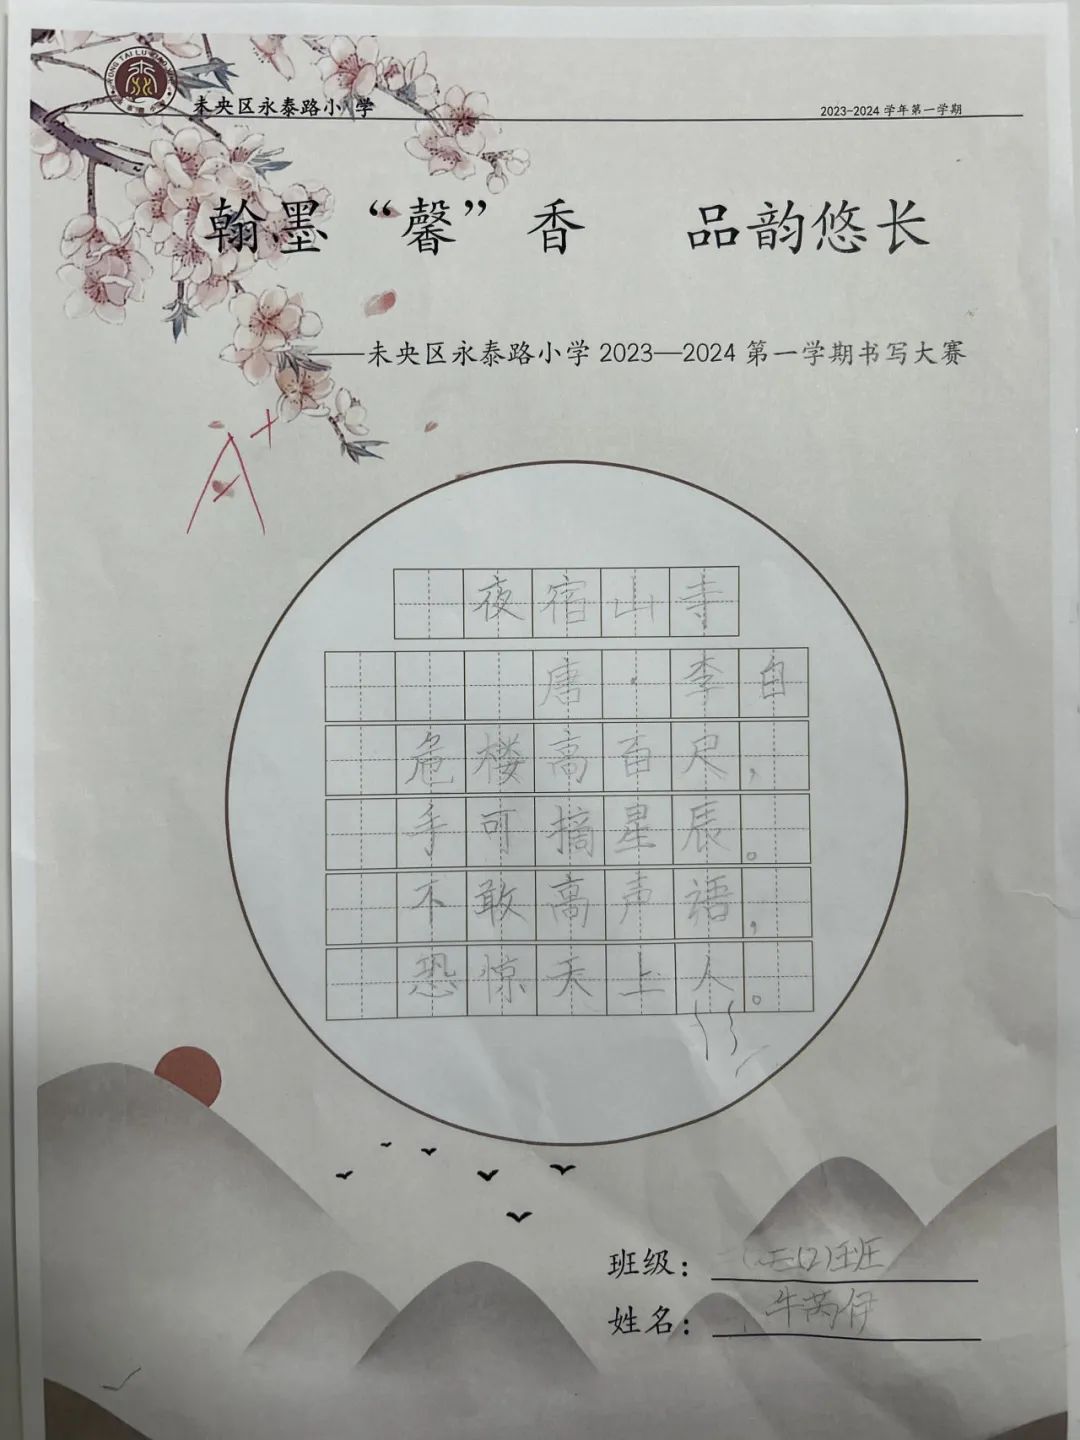 未央区永泰路小学
2023-2024 学年第一学期
翰墨“馨”香 品韵悠长
——未央区永泰路小学 2023—2024 第一学期书写大赛
A+
夜宿山寺
唐·李自
危楼高百尺，
手可摘星辰。
不敢高声语，
恐惊天上人。
班级：(2)班
姓名：牛芮伊